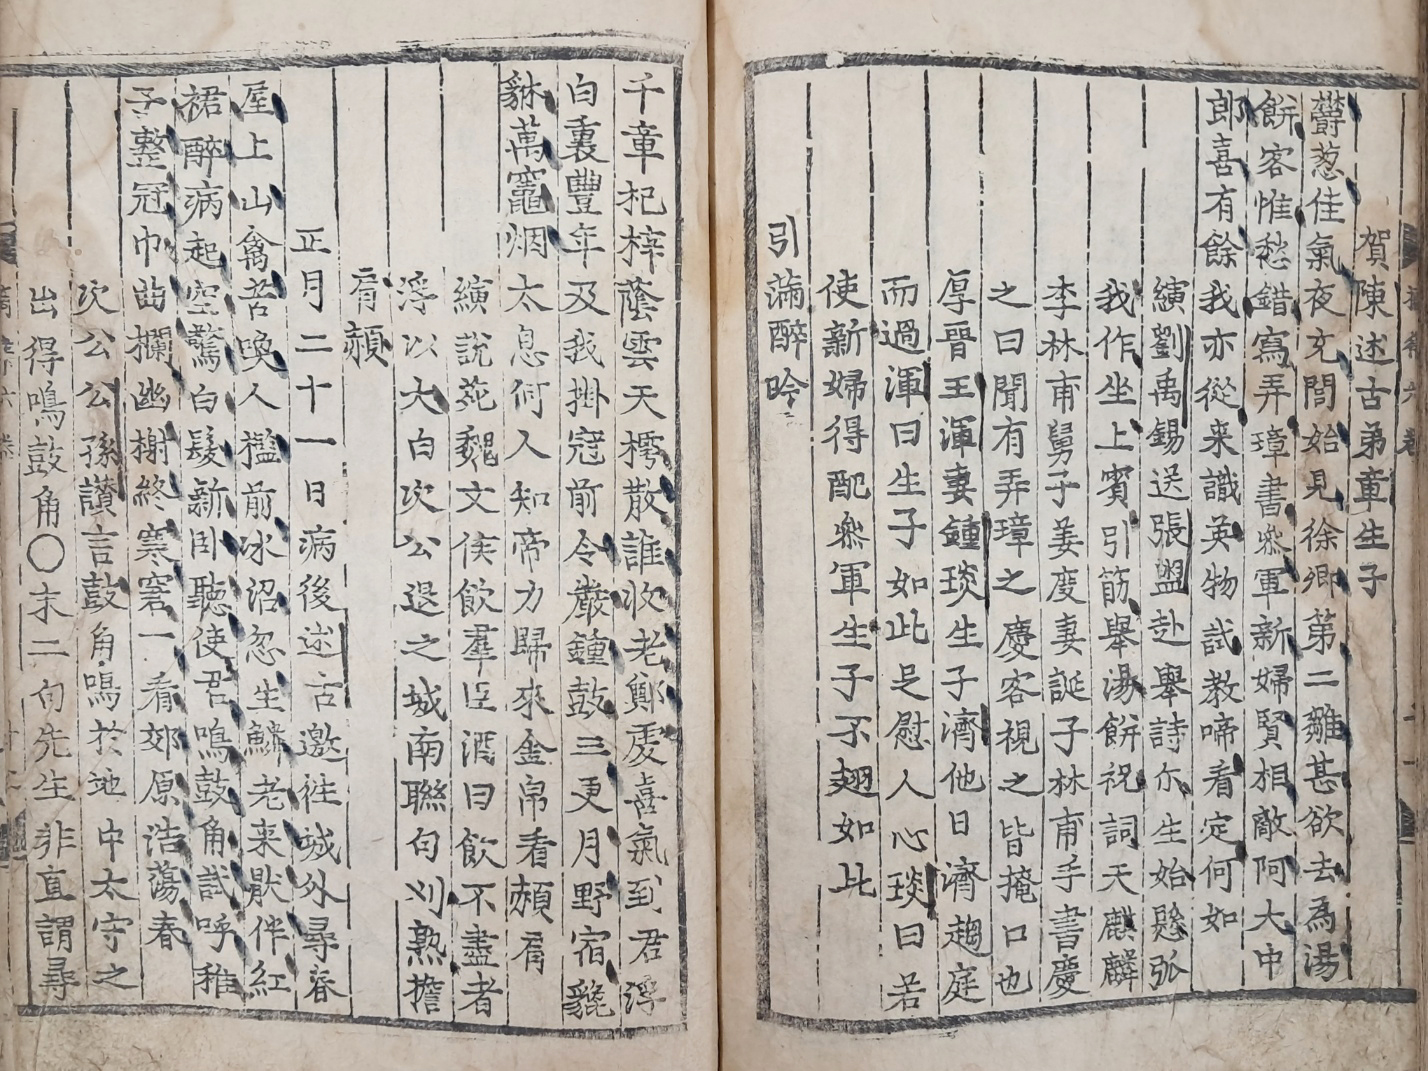 賀陳述古弟章生子
欝葱佳氣夜充閭始見徐卿第二雛甚欲去爲湯
餅客惟愁錯寫弄璋書叅軍新婦賢相敵阿大中
郎喜有餘我亦從来識英物試教啼看定何如
縯劉禹錫送張盥赴舉詩尓生始懸弧
我作坐上賓引筯舉湯餅祝詞天麒麟
李林甫舅子姜度妻誕子林甫手書慶
之曰聞有弄璋之慶客視之皆掩口也
厚晋王渾妻鍾琰生子濟他日濟趨庭
而過渾曰生子如此足慰人心琰曰若
使新婦得配叅軍生子不翅如此
引滿醉吟
千章杞梓蔭雲天樗散誰收老鄭虔喜氣到君浮
白裏豐年及我掛冠前令嚴鍾鼓三更月野宿貔
貅萬竈烟太息何人知帝力歸來金帛看頳肩
縯說苑魏文侯飮羣臣酒曰飮不盡者
浮以大白次公退之城南聯句刈熟擔
肩頳
正月二十一日病後述古邀徃城外尋春
屋上山禽苦喚人檻前冰沼忽生鱗老来厭伴紅
裙醉病起空驚白髮新卧聽使君鳴鼓角試呼稚
子整冠巾曲欄幽榭終寒窘一看郊原浩蕩春
次公公孫讃言鼓角鳴於地中太守之
出得鳴鼓角〇末二句先生非直謂尋